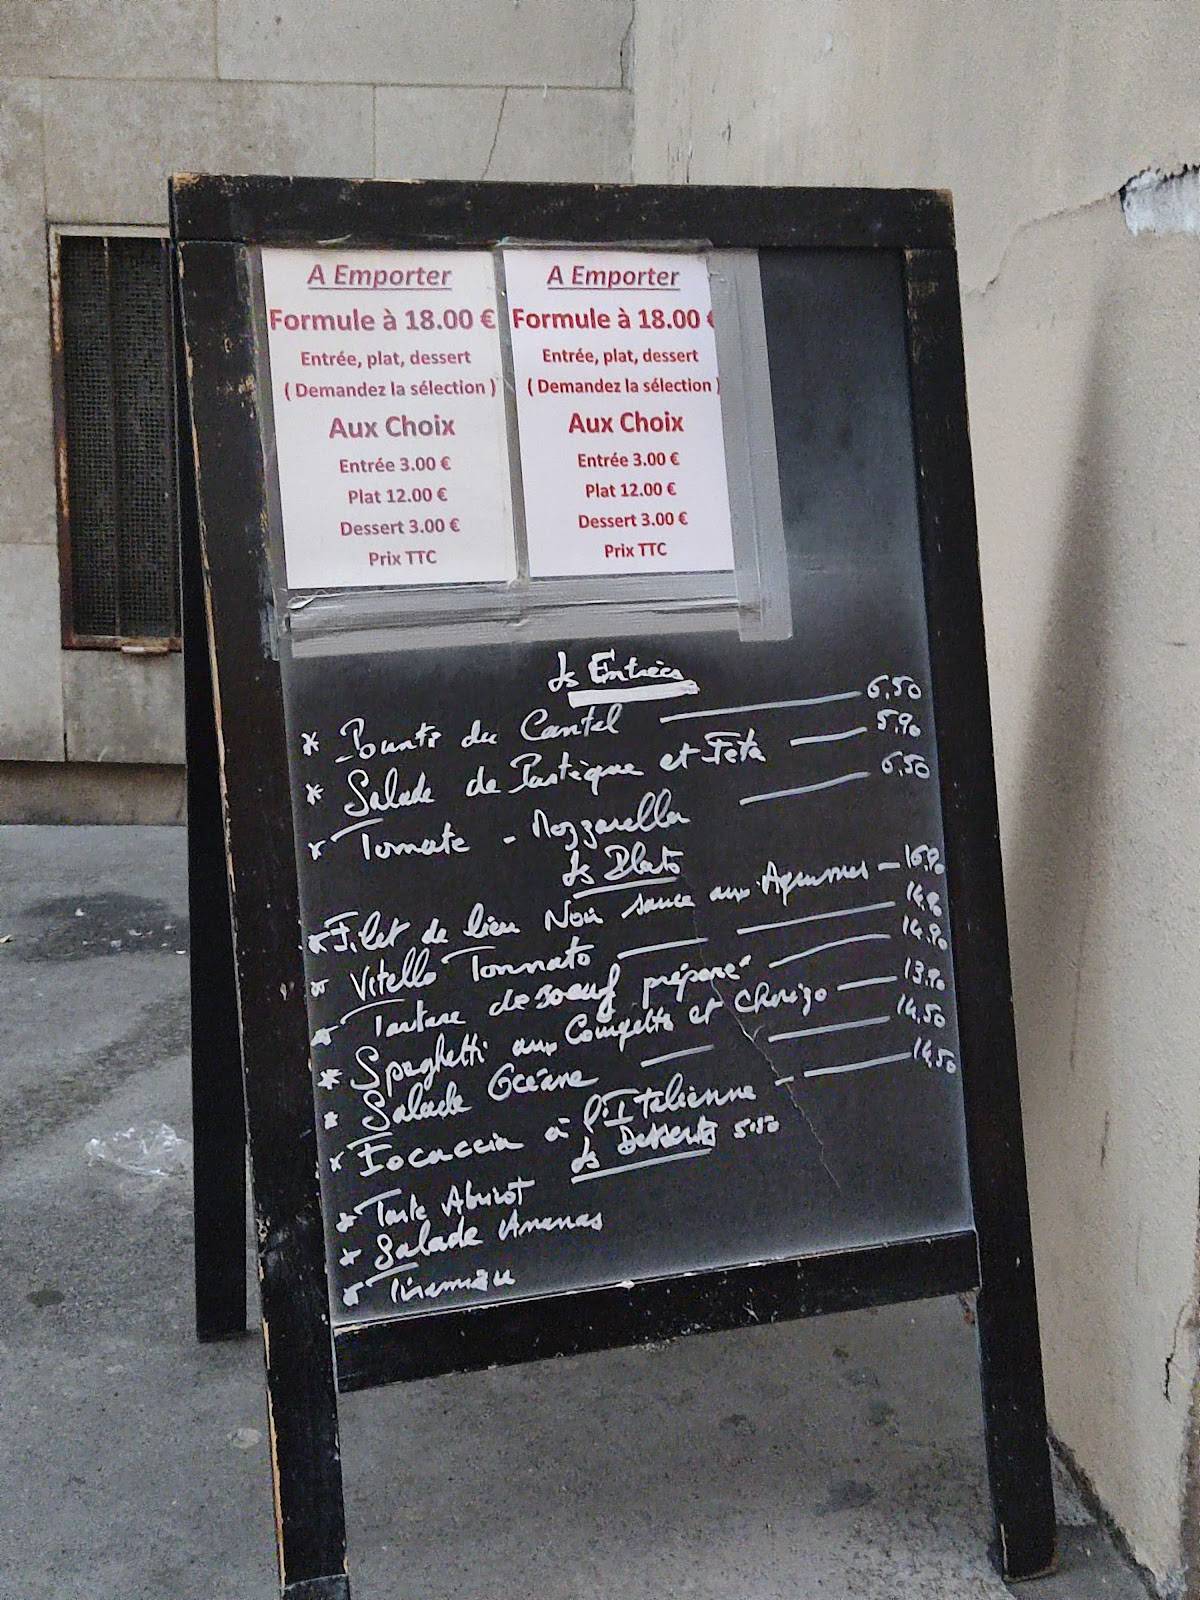 A Emporter
Formule à 18.00 €
Entrée, plat, dessert
( Demandez la sélection )
Aux Choix
Entrée 3.00 €
Plat 12.00 €
Dessert 3.00 €
Prix TTC
A Emporter
Formule à 18.00 €
Entrée, plat, dessert
( Demandez la sélection )
Aux Choix
Entrée 3.00 €
Plat 12.00 €
Dessert 3.00 €
Prix TTC
Ls Entrées
* Pounti du Cantal 6,50
* Salade de Pastèque et Féta 5,90
* Tomate - Mozzarella 6,50
Ls Plats
* Filet de lieu Noir sauce aux Agrumes - 16,90
* Vitello Tonnato
* Tartare de Boeuf préparé 14,90
* Spaghetti aux Courgettes et Chorizo 13,90
* Salade Océane 14,50
* Focaccia à l'Italienne 14,50
Ls Desserts
* Tarte Abricot
* Salade Ananas
* Tiramisu